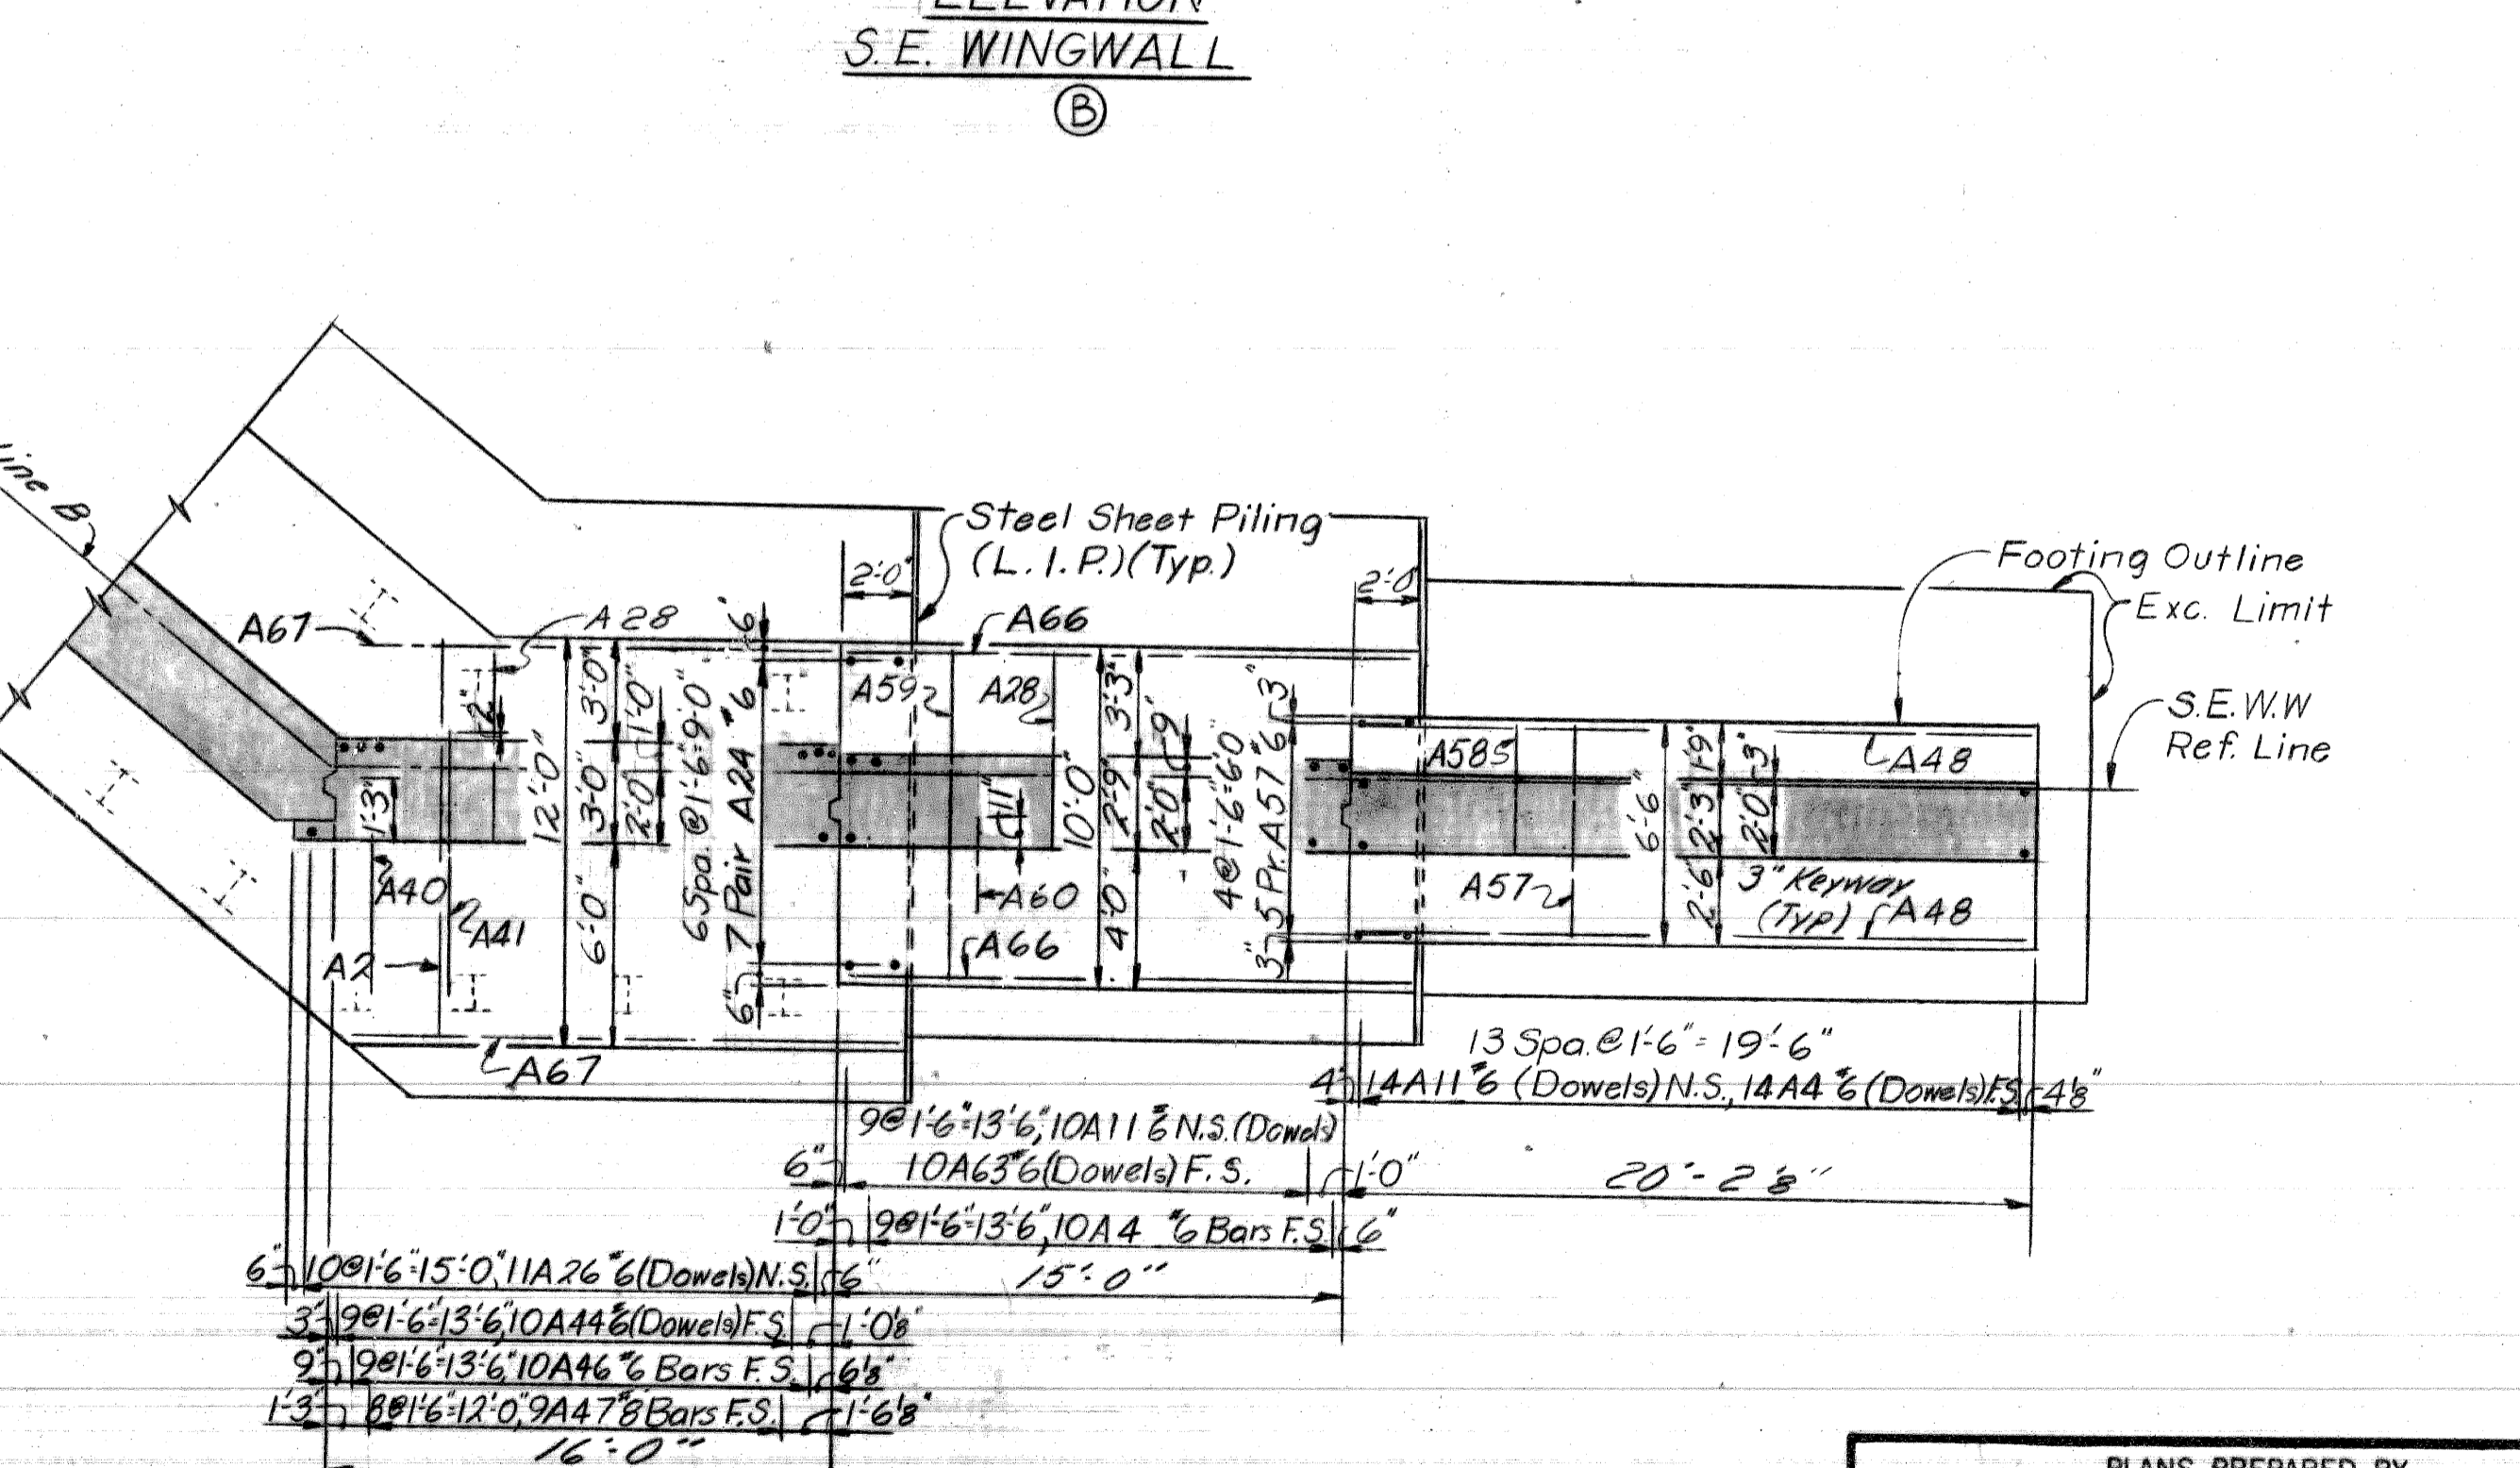 ELEVATION
S.E. WINGWALL
B
Line B
Steel Sheet Piling
(L.I.P.)(Typ.)
Footing Outline
Exc. Limit
S.E.W.W
Ref. Line
2'-0"
2'-0"
A67
A28
6"
A66
A59
A28
2"
12'-0"
3'-0"
3'-0"
6'-0"
1'-0"
2'-0"
6 Spa. @ 1'-6"=9'-0"
7 Pair A24 #6
6"
1'-3"
A40
A41
A2
A67
11"
A60
A66
10'-0"
3'-3"
2'-9"
4'-0"
9"
2'-0"
4@1'-6"=6'0
5Pr. A57 #6
3"
3"
A58
A57
6'-6"
1'-9"
2'-3"
2'-6"
3"
2'-0"
A48
3" Keyway
(Typ)
A48
13 Spa. @ 1'-6" = 19'-6"
4" 14A11 #6 (Dowels) N.S., 14A4 #6 (Dowels) F.S. 4⅛"
9@1'-6"=13'-6", 10A11 #6 N.S. (Dowels)
6" 10A63 #6 (Dowels) F.S. 1'-0"
20'-2⅛"
1'-0" 9@1'-6"=13'-6", 10A4 #6 Bars F.S. 6"
6" 10@1'-6"=15'-0", 11A26 #6 (Dowels) N.S. 6"
15'-0"
3" 9@1'-6"=13'-6", 10A44 #6 (Dowels) F.S. 1'-0⅛"
9" 9@1'-6"=13'-6", 10A46 #6 Bars F.S. 6⅛"
1'-3" 8@1'-6"=12'-0", 9A47 #8 Bars F.S. 1'-6⅛"
16'-0"
PLANS PREPARED BY